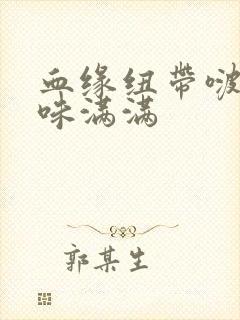 血缘纽带啵
味满满
郭某生